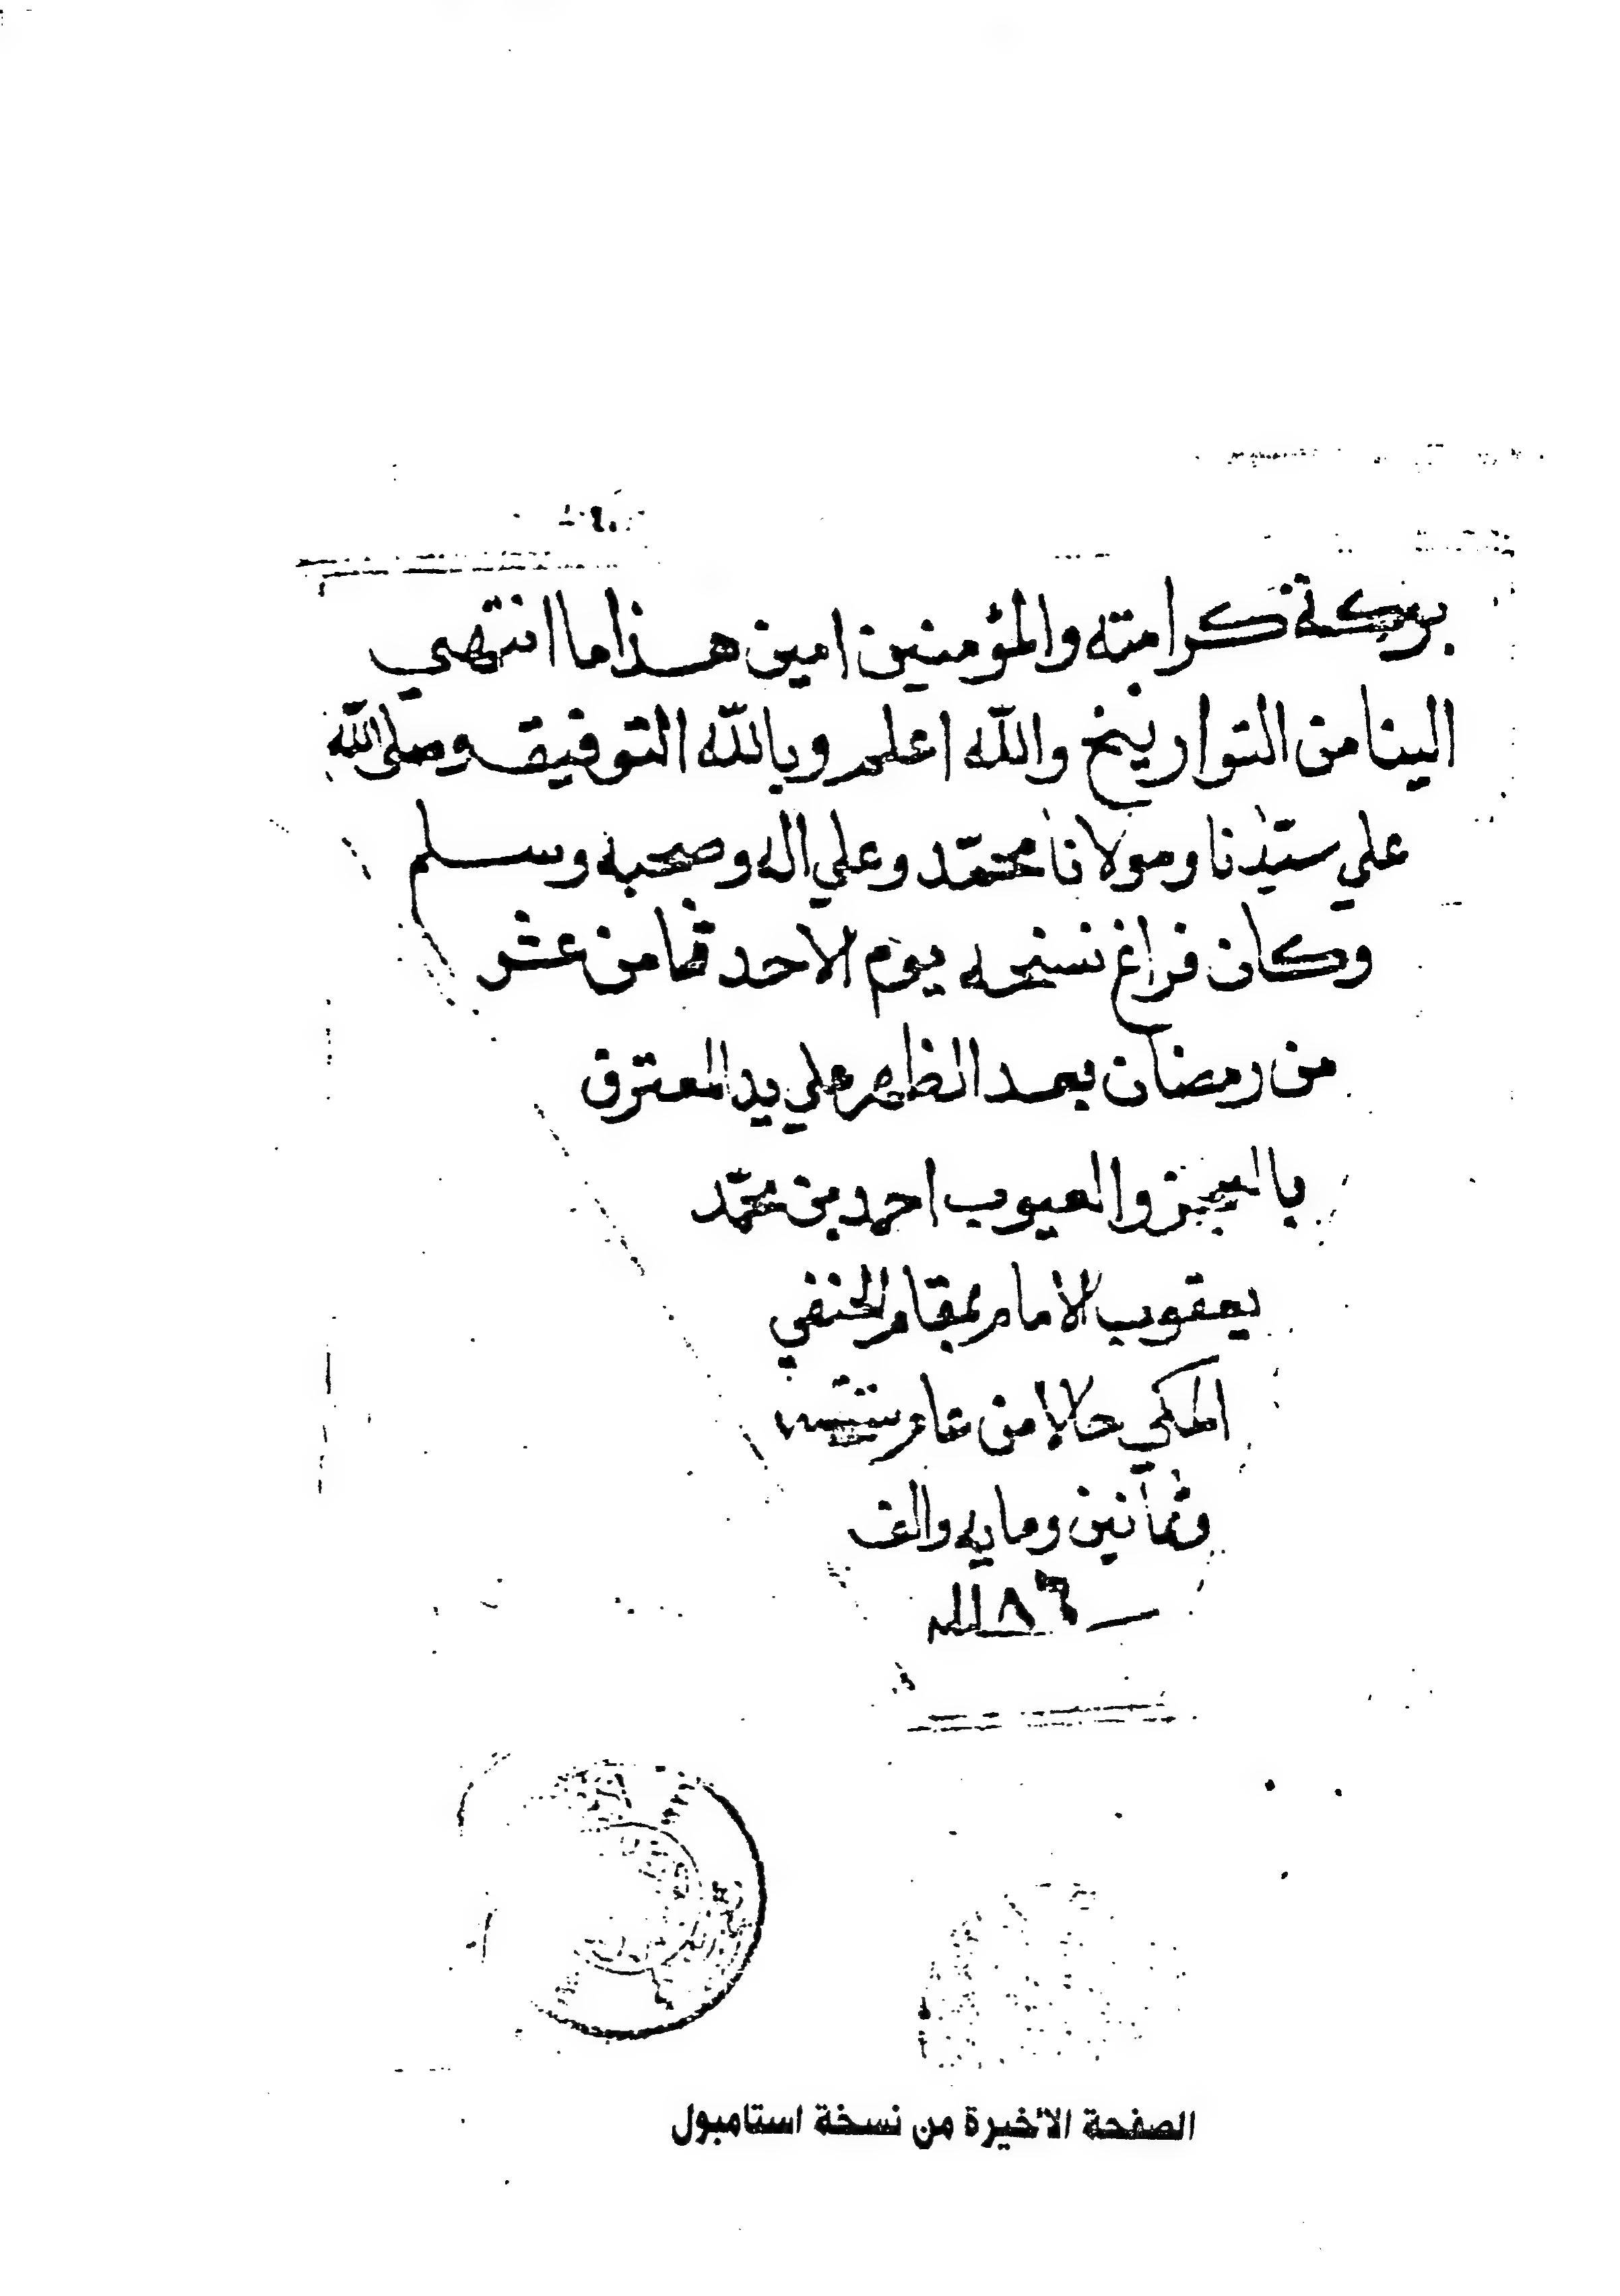 بركة كرامته والمؤمنين امين هذا ما انتهي
الينا من التواريخ والله اعلم وبالله التوفيق وصلى الله
علي سيّدنا ومولانا محمّد وعلي اله وصحبه وسلم
وكان فراغ نسخه يوم الاحد ثامن عشر
من رمضان بعد الظهر علي يد المعترف
بالعجز والعيوب احمد بن محمّد
يعقوب الامام بمقام الحنفي
المكي حالا من عام ستة
وثمانين ومايه والف
١١٨٦
الصفحة الأخيرة من نسخة استامبول